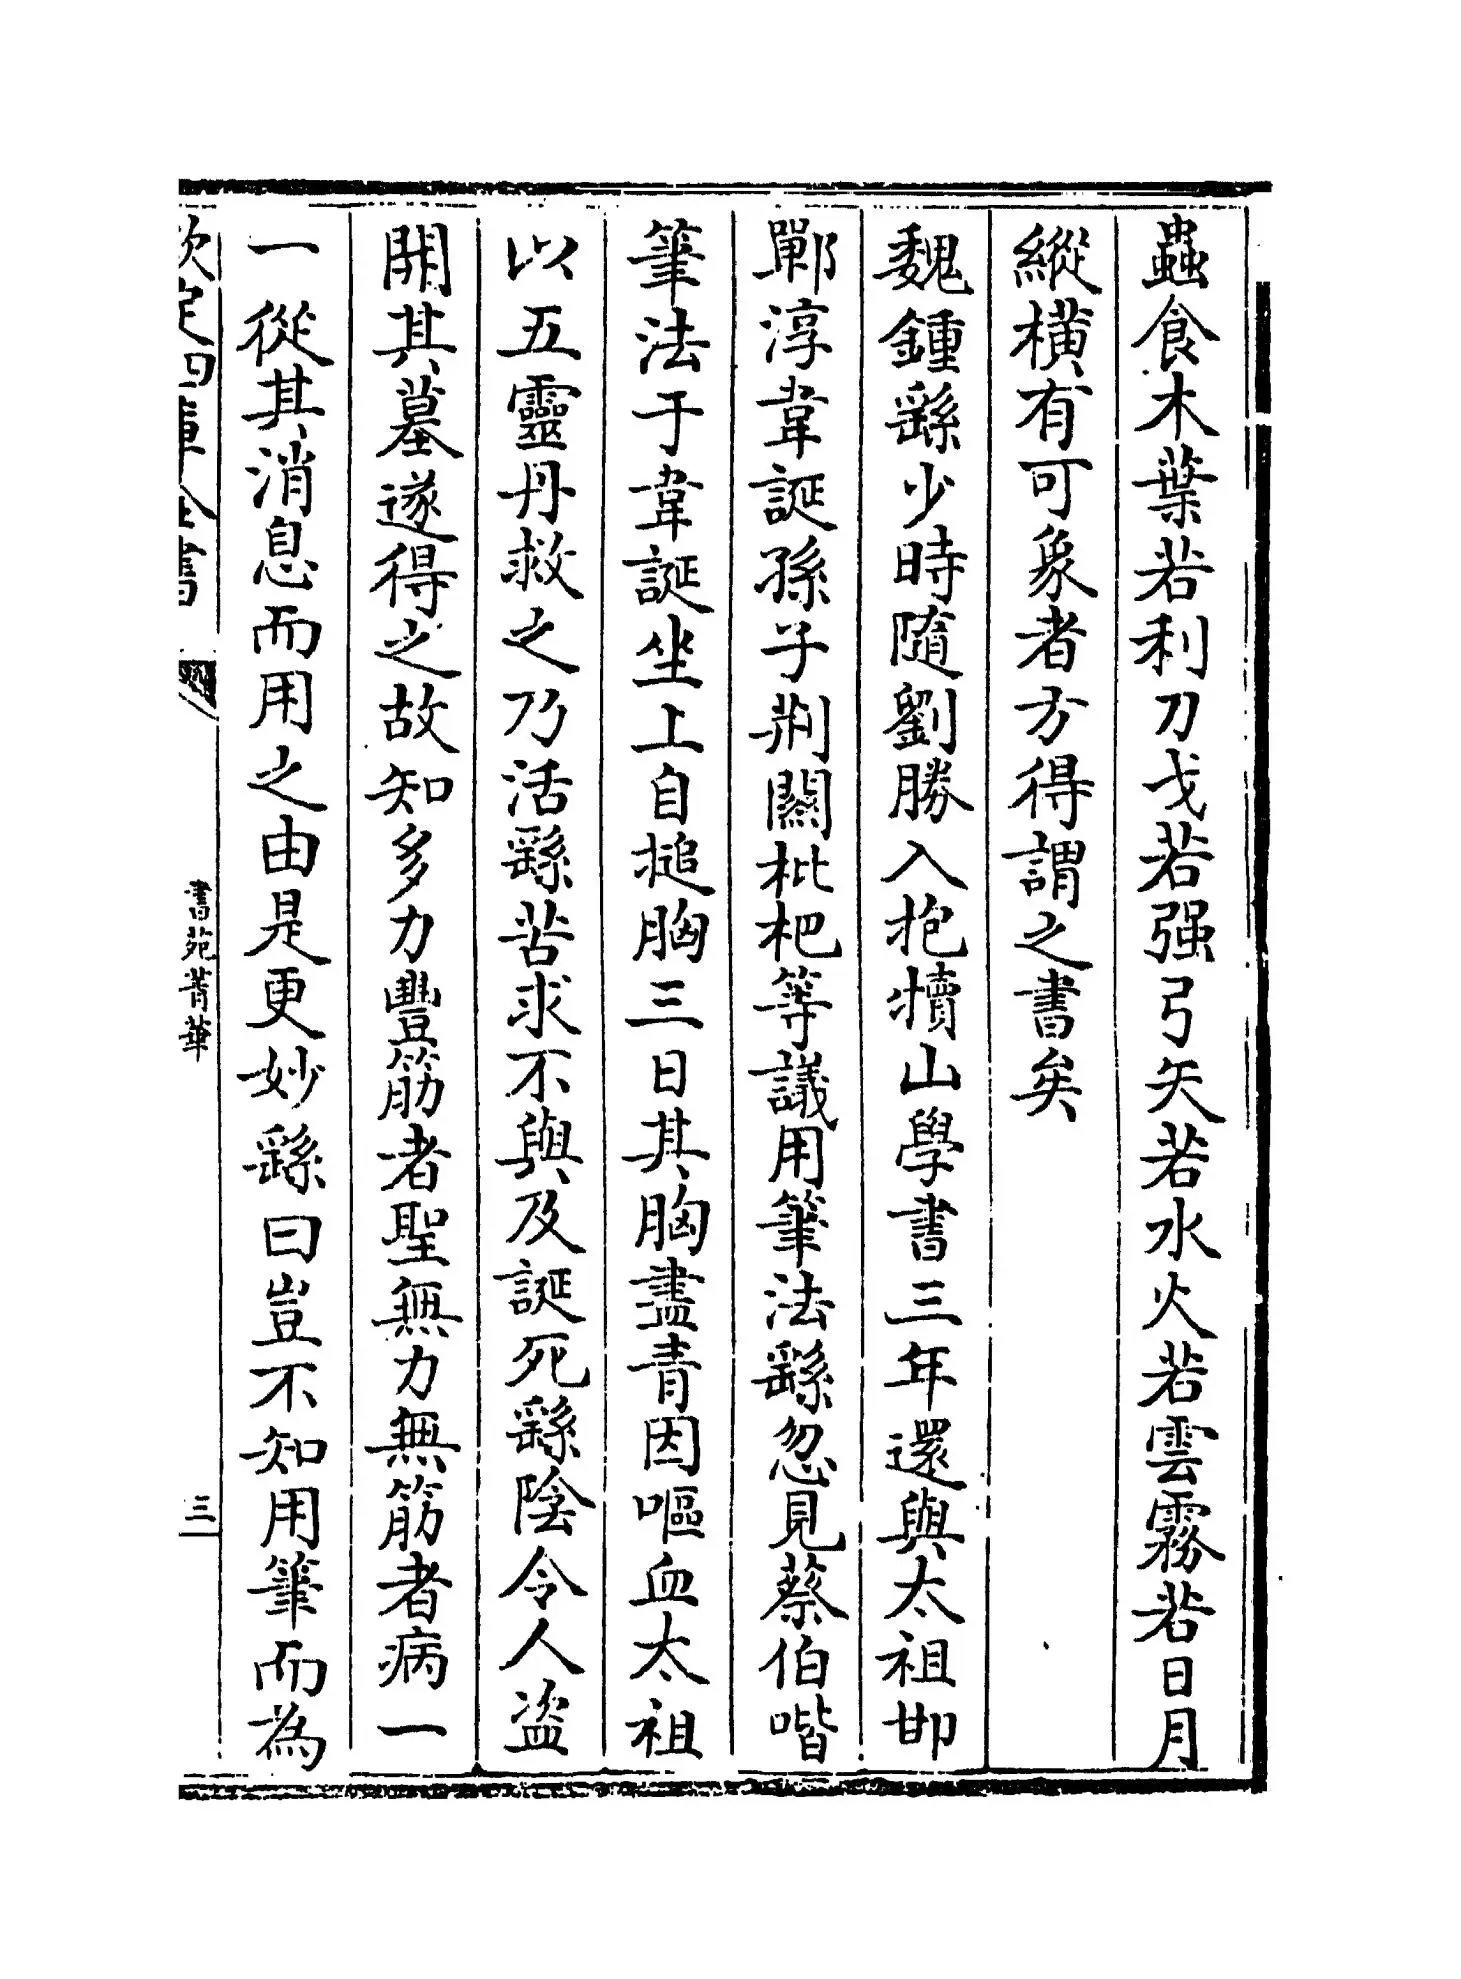 蟲食木葉若利刀戈若强弓矢若水火若雲霧若日月
縱橫有可象者方得謂之書矣
魏鍾繇少時隨劉勝入抱犢山學書三年還與太祖邯
鄲淳韋誕孫子荆關枇杷等議用筆法繇忽見蔡伯喈
筆法于韋誕坐上自搥胸三日其胸盡青因嘔血太祖
以五靈丹救之乃活繇苦求不與及誕死繇陰令人盜
開其墓遂得之故知多力豐筋者聖無力無筋者病一
一從其消息而用之由是更妙繇曰豈不知用筆而為
欽定四庫全書
書苑菁華
三